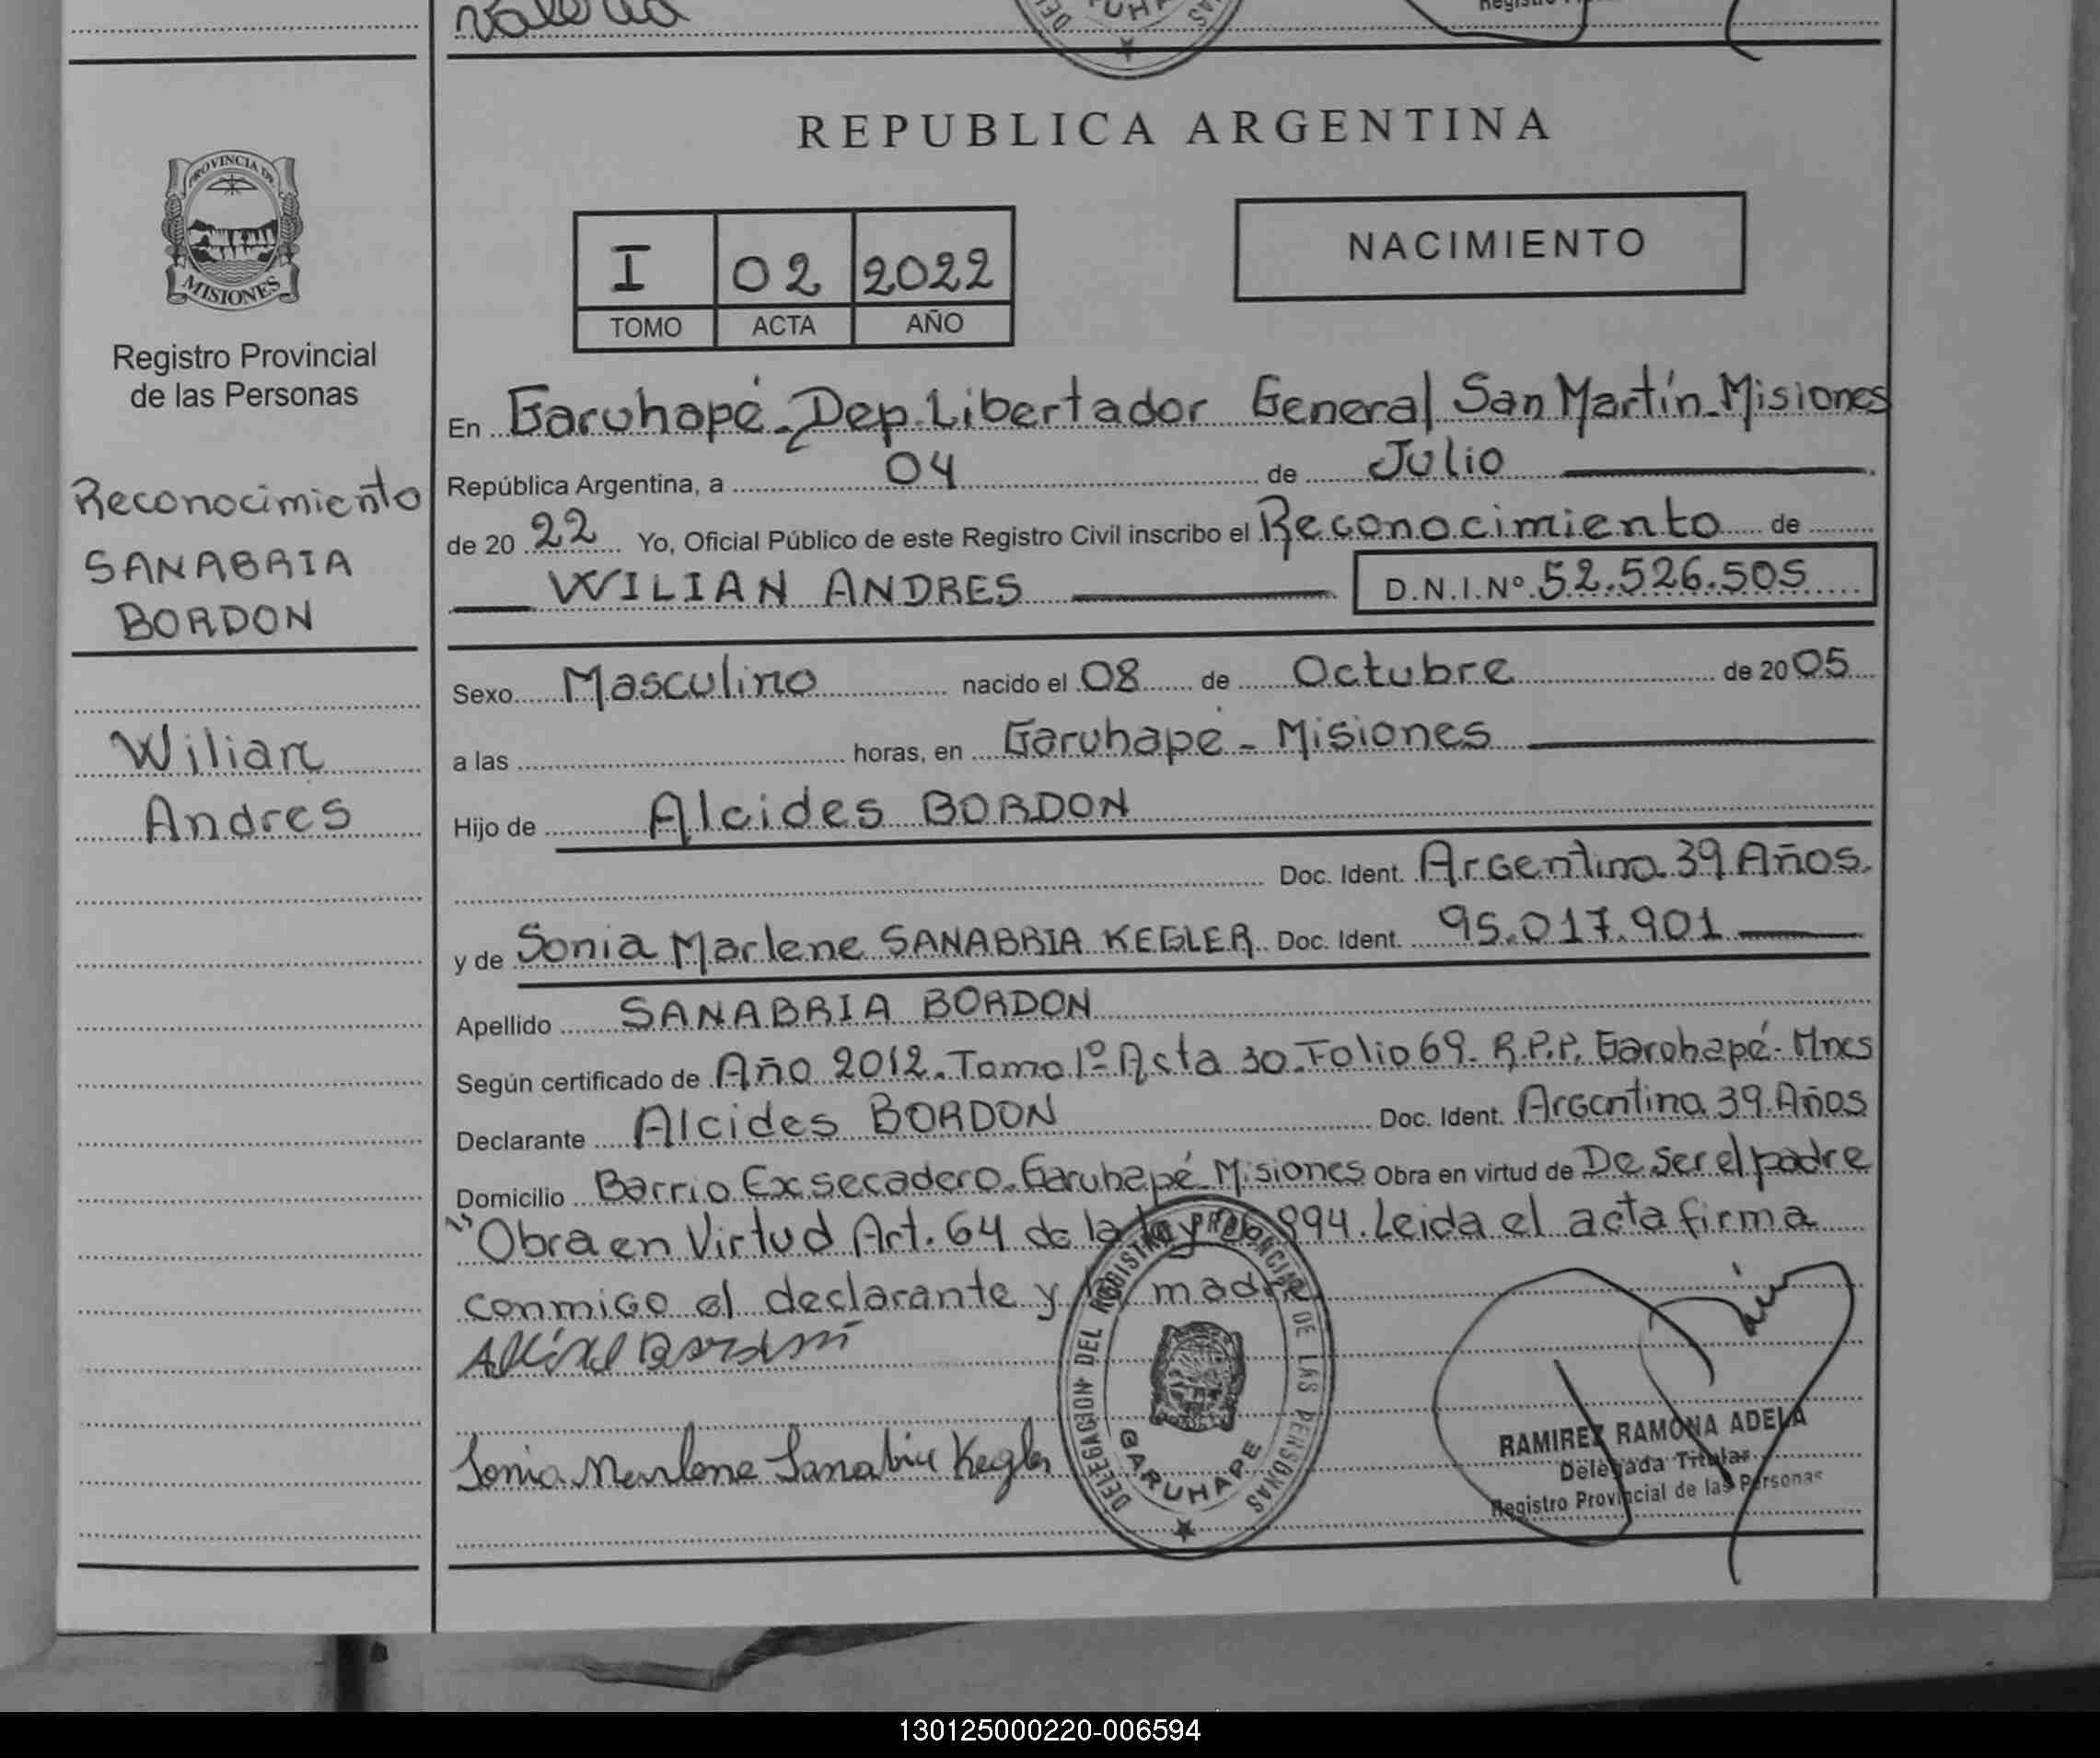 Valeria
PROVINCIA DE
MISIONES
Registro Provincial
de las Personas
Reconocimiento
SANABRIA
BORDON
Wilian
Andres
REPUBLICA ARGENTINA
I 02 2022
TOMO ACTA AÑO
NACIMIENTO
En Garuhapé - Dep. Libertador General San Martín - Misiones
República Argentina, a 04 de Julio
de 20 22 Yo, Oficial Público de este Registro Civil inscribo el Reconocimiento de
WILIAN ANDRES D.N.I.Nº 52.526.505
Sexo Masculino nacido el 08 de Octubre de 20 05
a las horas, en Garuhapé - Misiones
Hijo de Alcides BORDON
Doc. Ident. Argentina 39 Años.
y de Sonia Marlene SANABRIA KEGLER Doc. Ident. 95.017.901
Apellido SANABRIA BORDON
Según certificado de Año 2012. Tomo 1º Acta 30. Folio 69. R.P.P. Garuhapé - Mnes
Declarante Alcides BORDON Doc. Ident. Argentina 39 Años
Domicilio Barrio Exsecadero - Garuhapé - Misiones Obra en virtud de De ser el padre
"Obra en Virtud Art. 64 de la ley 26.994. Leida el acta firma
conmigo el declarante y la madre
Sonia Marlene Sanabria Kegler
DELEGACION DEL REGISTRO PROVINCIAL DE LAS PERSONAS
GARUHAPE
RAMIREZ RAMONA ADELA
Delegada Titular
Registro Provincial de las Personas
130125000220-006594